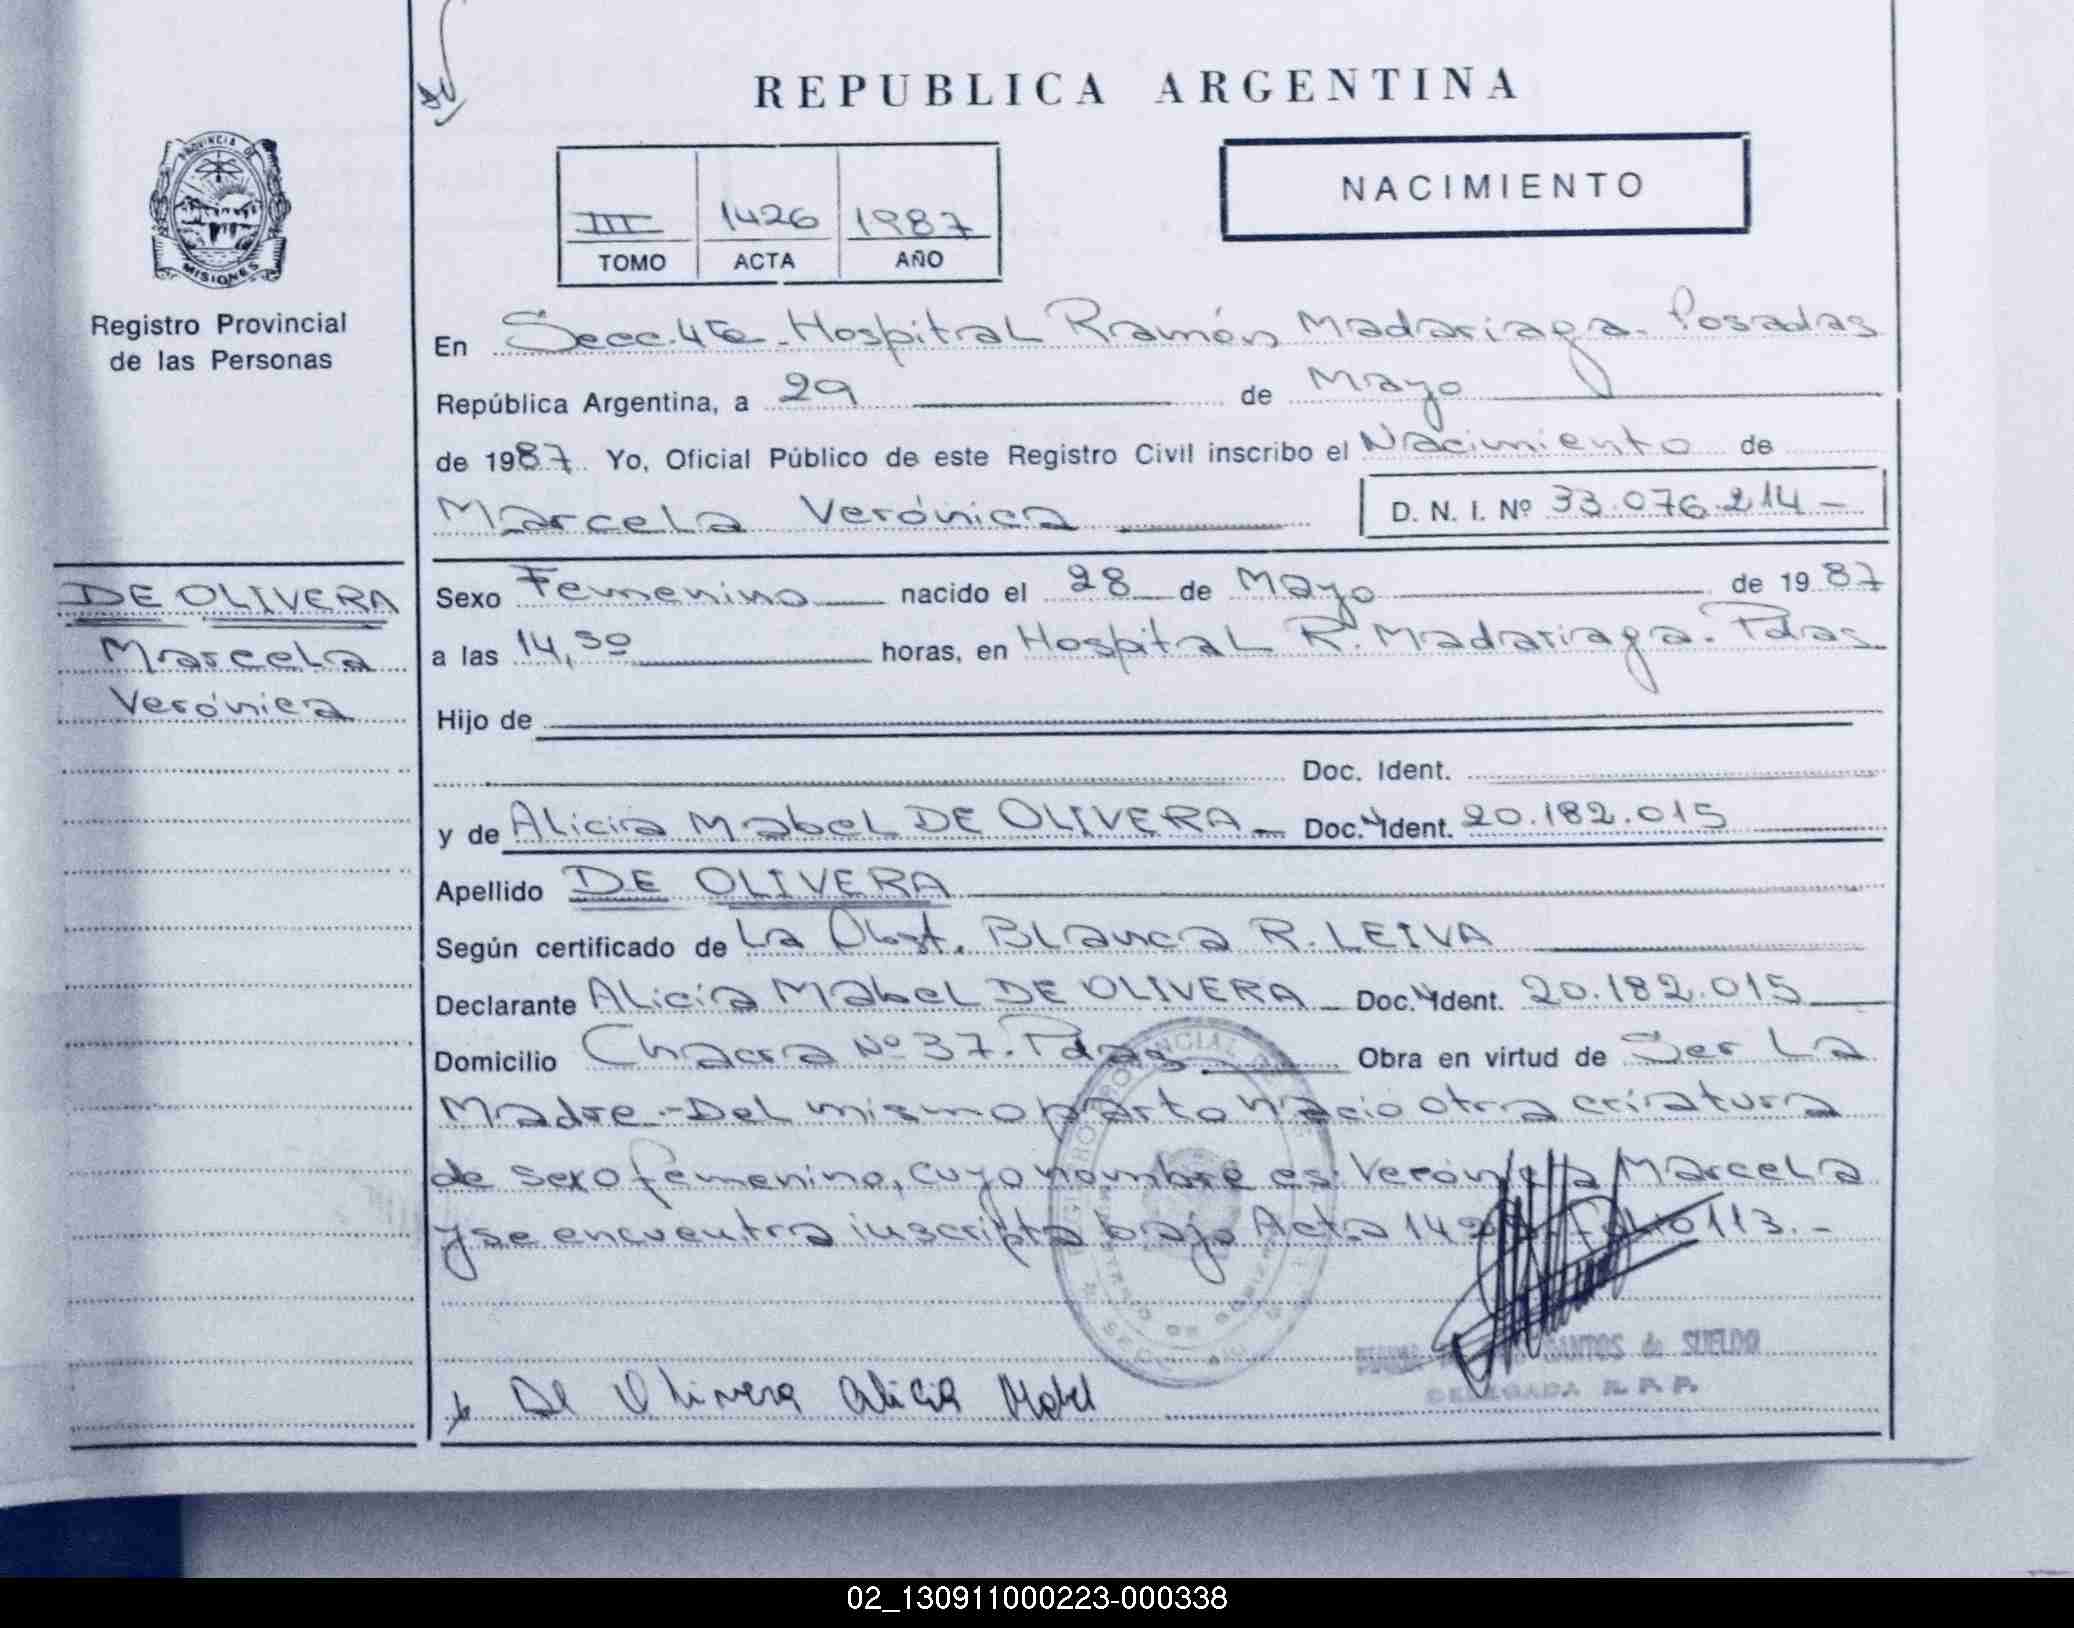 REPUBLICA ARGENTINA
PROVINCIA DE
MISIONES
Registro Provincial
de las Personas
NACIMIENTO
III 1426 1987
TOMO ACTA AÑO
En Secc. 4ta - Hospital Ramón Madariaga. Posadas
República Argentina, a 29 de Mayo
de 1987. Yo, Oficial Público de este Registro Civil inscribo el Nacimiento de
Marcela Verónica D. N. I. Nº 33.076.214 -
DE OLIVERA
Marcela
Verónica
Sexo Femenino nacido el 28 de Mayo de 1987
a las 14,50 horas, en Hospital R. Madariaga. Pdas.
Hijo de
Doc. Ident.
y de Alicia Mabel DE OLIVERA - Doc. Ident. 20.182.015
Apellido DE OLIVERA
Según certificado de La Obst. Blanca R. LEIVA
Declarante Alicia Mabel DE OLIVERA - Doc. Ident. 20.182.015
Domicilio Chacra Nº 37. Pdas Obra en virtud de Ser La
Madre.- Del mismo parto nació otra criatura
de sexo femenino, cuyo nombre es: Verónica Marcela
y se encuentra inscripta bajo Acta Folio 113.-
SANTOS de SUELDO
DELEGADA R. P. P.
De Olivera Alicia Mabel
02_130911000223-000338